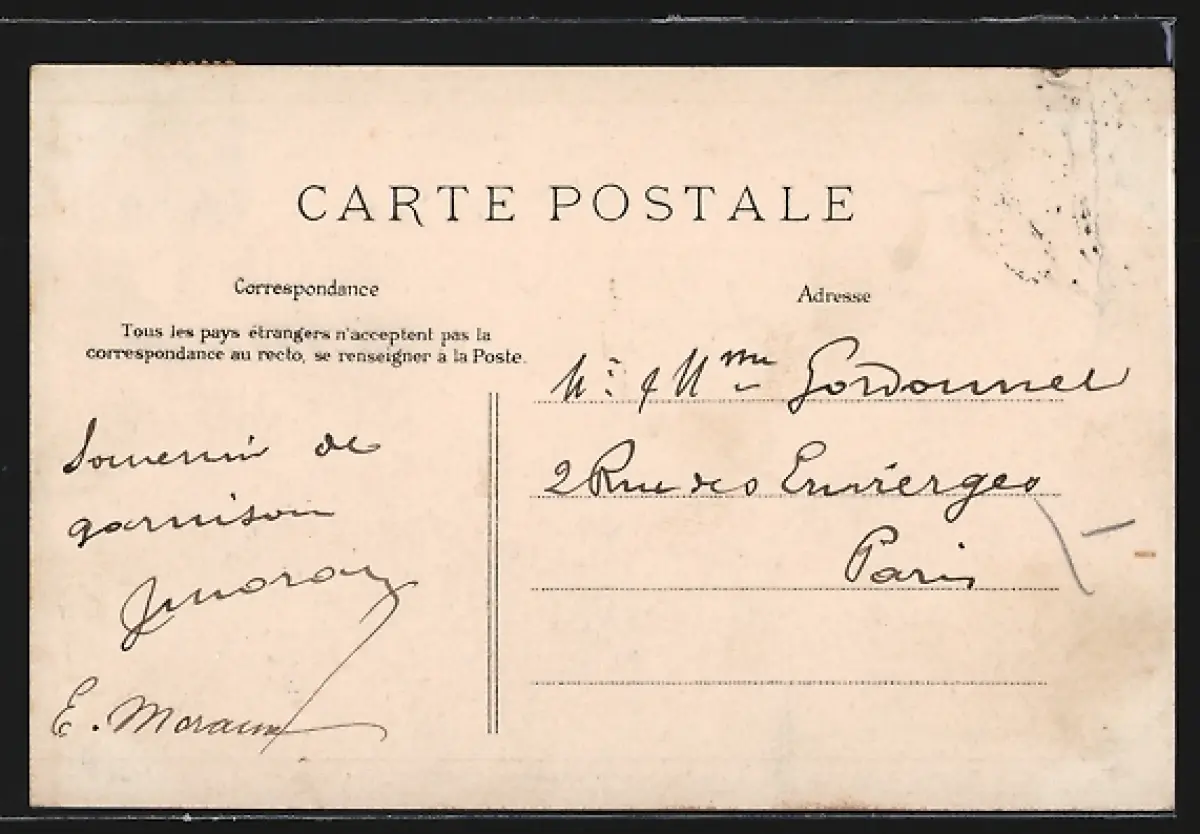 CARTE POSTALE
Correspondance
Tous les pays étrangers n'acceptent pas la
correspondance au recto, se renseigner à la Poste.
Souvenir de
garnison
E. Moraux
Adresse
Mr & Mme
2 Rue des Envierges
Paris